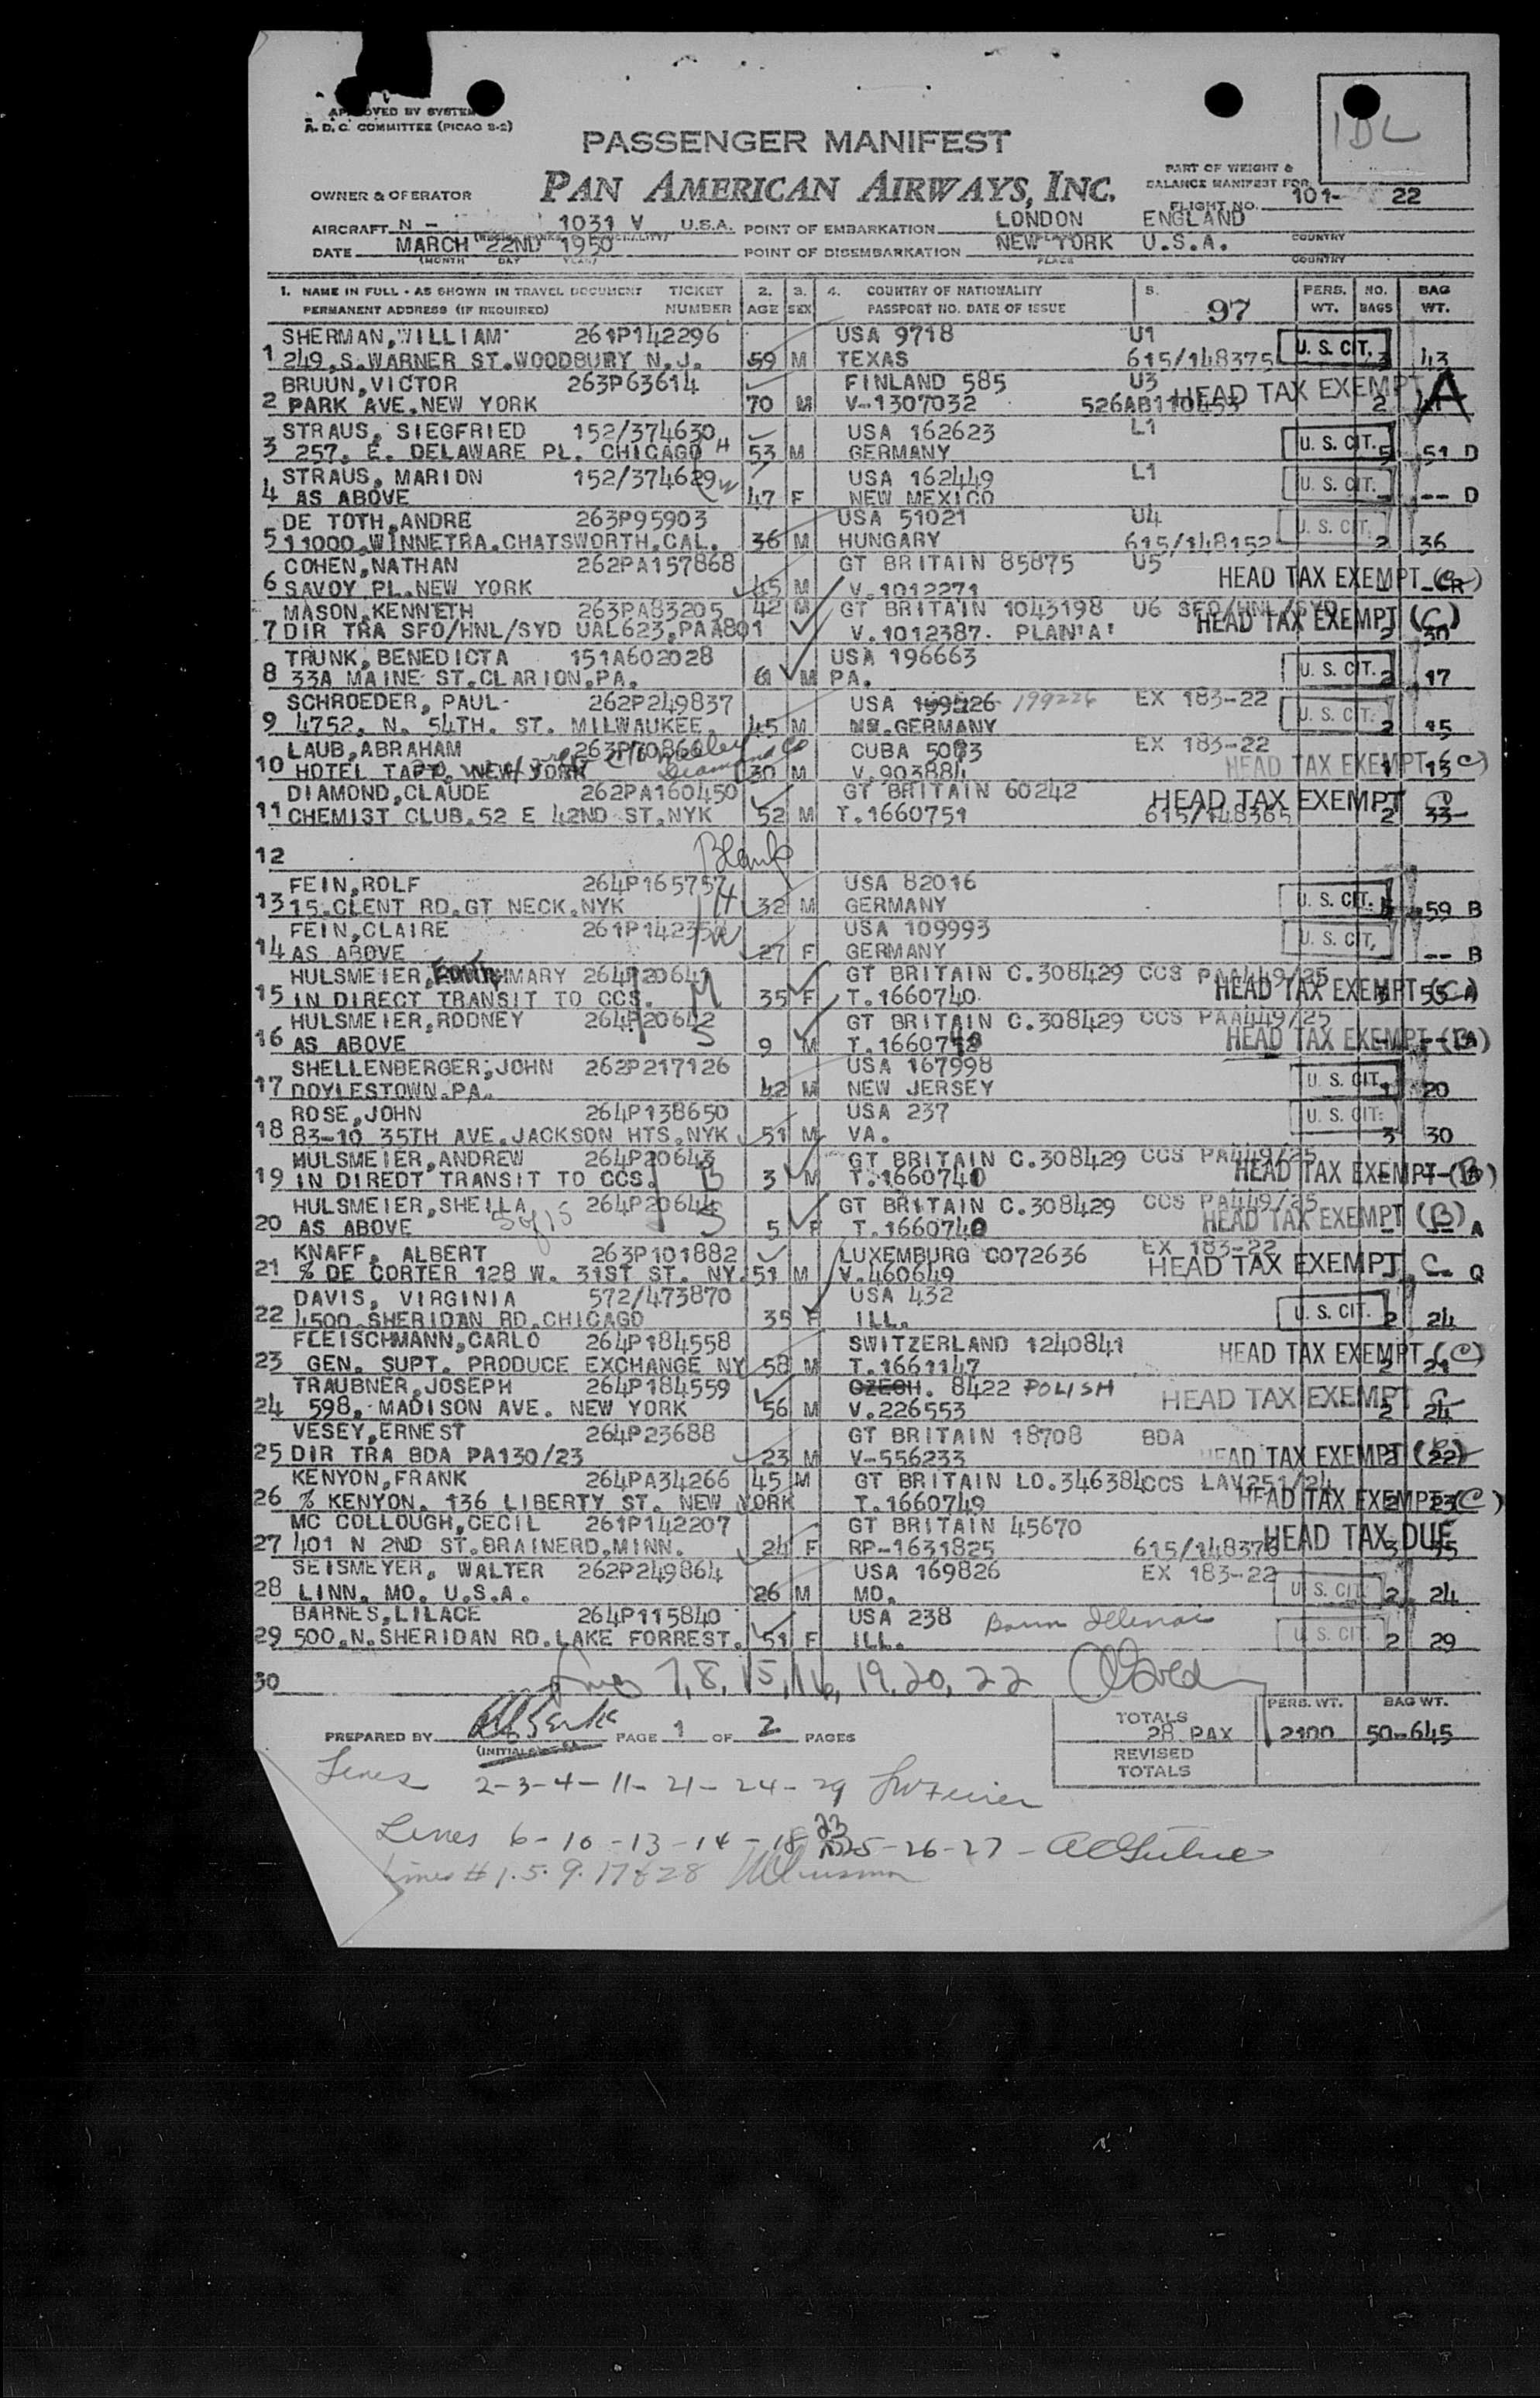 APPROVED BY SYSTEM
A. D. C. COMMITTEE (PICAO S-2)
IDL
PASSENGER MANIFEST
PART OF WEIGHT &
BALANCE MANIFEST FOR
OWNER & OPERATOR PAN AMERICAN AIRWAYS, INC.
FLIGHT NO. 101- 22
AIRCRAFT N - 1031 V U.S.A. POINT OF EMBARKATION LONDON ENGLAND
DATE MARCH 22ND 1950 POINT OF DISEMBARKATION NEW YORK U.S.A.
(MONTH DAY YEAR) PLACE COUNTRY
1. NAME IN FULL - AS SHOWN IN TRAVEL DOCUMENT TICKET 2. 3. 4. COUNTRY OF NATIONALITY 5. PERS. NO. BAG
PERMANENT ADDRESS (IF REQUIRED) NUMBER AGE SEX PASSPORT NO. DATE OF ISSUE 97 WT. BAGS WT.
SHERMAN, WILLIAM 261P142296 USA 9718 U1
1 249.S.WARNER ST.WOODBURY N.J. 59 M TEXAS 615/148375 U. S. CIT. 3 43
BRUUN,VICTOR 263P63614 FINLAND 585 U3 HEAD TAX EXEMPT A
2 PARK AVE.NEW YORK 70 M V-1307032 2
STRAUS, SIEGFRIED 152/374630 USA 162623 L1
3 257. E. DELAWARE PL. CHICAGO H 53 M GERMANY U. S. CIT. 5 51 D
STRAUS, MARION 152/374629 USA 162449 L1
4 AS ABOVE W 47 F NEW MEXICO U. S. CIT. - -- D
DE TOTH,ANDRE 263P95903 USA 51021 U4
5 11000.WINNETRA.CHATSWORTH.CAL. 36 M HUNGARY 615/148152 U. S. CIT. 2 36
COHEN,NATHAN 262PA157868 GT BRITAIN 85875 U5
6 SAVOY PL.NEW YORK 45 M V.1012271 HEAD TAX EXEMPT
MASON,KENNETH 263PA83205 42 M GT BRITAIN 1043198 U6 SFO/HNL/SYD
7 DIR TRA SFO/HNL/SYD UAL623.PAA801 V.1012387. PLAN'A' HEAD TAX EXEMPT (C) 2 30
TRUNK, BENEDICTA 151A602028 USA 196663
8 33A MAINE ST.CLARION.PA. 61 M PA. U. S. CIT. 2 17
SCHROEDER, PAUL 262P249837 USA 199226 EX 183-22
9 4752. N. 54TH. ST. MILWAUKEE. 45 M GERMANY U. S. CIT. 2 15
LAUB,ABRAHAM CUBA EX 183-22
10 HOTEL TAFT. NEW YORK 30 M V.903884 HEAD TAX EXEMPT (C) 1 15
DIAMOND,CLAUDE 262PA160450 GT BRITAIN 60242
11 CHEMIST CLUB.52 E 42ND ST.NYK 52 M T.1660751 615/148365 HEAD TAX EXEMPT 2 33
12 Blank
FEIN,ROLF 264P165757 USA 82016
13 15.CLENT RD.GT NECK.NYK H 32 M GERMANY U. S. CIT. 59 B
FEIN,CLAIRE USA 109993
14 AS ABOVE W 27 F GERMANY U. S. CIT. -- B
HULSMEIER, MARY 264P20641 GT BRITAIN C.308429 CCS PAA449/25
15 IN DIRECT TRANSIT TO CCS. M 35 F T.1660740 HEAD TAX EXEMPT (C) 3 55 A
HULSMEIER,RODNEY 264P20642 GT BRITAIN C.308429 CCS PAA449/25
16 AS ABOVE S 9 M HEAD TAX EXEMPT (B)
SHELLENBERGER,JOHN 262P217126 USA 167998
17 DOYLESTOWN.PA. 42 M NEW JERSEY U. S. CIT. 1 20
ROSE,JOHN 264P138650 USA 237
18 83-10 35TH AVE.JACKSON HTS.NYK 51 M VA. U. S. CIT. 3 30
HULSMEIER,ANDREW 264P20643 GT BRITAIN C.308429 CCS PA449/25
19 IN DIREDT TRANSIT TO CCS. B 3 M T.1660740 HEAD TAX EXEMPT (B)
HULSMEIER,SHEILA 264P20644 GT BRITAIN C.308429 CCS PA449/25
20 AS ABOVE 5 of 15 S 5 F T.1660740 HEAD TAX EXEMPT (B) A
KNAFF, ALBERT 263P101882 LUXEMBURG C072636 EX 183-22
21 % DE CORTER 128 W. 31ST ST. NY. 51 M V.460649 HEAD TAX EXEMPT C Q
DAVIS, VIRGINIA 572/473870 USA 432
22 4500.SHERIDAN RD.CHICAGO 35 F ILL. U. S. CIT. 2 24
FLEISCHMANN,CARLO 264P184558 SWITZERLAND 1240841
23 GEN. SUPT. PRODUCE EXCHANGE NY 58 M T.1661147 HEAD TAX EXEMPT (C) 2 21
TRAUBNER,JOSEPH 264P184559 CZECH. 8422 POLISH
24 598, MADISON AVE. NEW YORK 56 M V.226553 HEAD TAX EXEMPT C 2 24
VESEY,ERNEST 264P23688 GT BRITAIN 18708 BDA
25 DIR TRA BDA PA130/23 23 M V-556233 HEAD TAX EXEMPT 2 22
KENYON,FRANK 264PA34266 45 M GT BRITAIN LO.346384 CCS LAV251/24
26 % KENYON. 136 LIBERTY ST. NEW YORK T.1660749 HEAD TAX EXEMPT (C) 2 23
MC COLLOUGH,CECIL 261P142207 GT BRITAIN 45670
27 401 N 2ND ST.BRAINERD,MINN. 24 F RP-1631825 615/148376 HEAD TAX DUE 3
SEISMEYER, WALTER 262P249864 USA 169826 EX 183-22
28 LINN. MO. U.S.A. 26 M MO. U. S. CIT. 2 24
BARNES,LILACE 264P115840 USA 238 Born Illinois
29 500.N.SHERIDAN RD.LAKE FORREST. 51 F ILL. U. S. CIT. 2 29
30 Lines 7, 8, 15, 16, 19, 20, 22
PREPARED BY PAGE 1 OF 2 PAGES
PERS. WT. BAG WT.
TOTALS 28 PAX 2100 50-645
REVISED TOTALS
Lines 2-3-4-11-21-24-29
Lines 6-10-13-14-18 23 25-26-27
Lines # 1.5.9.17&28